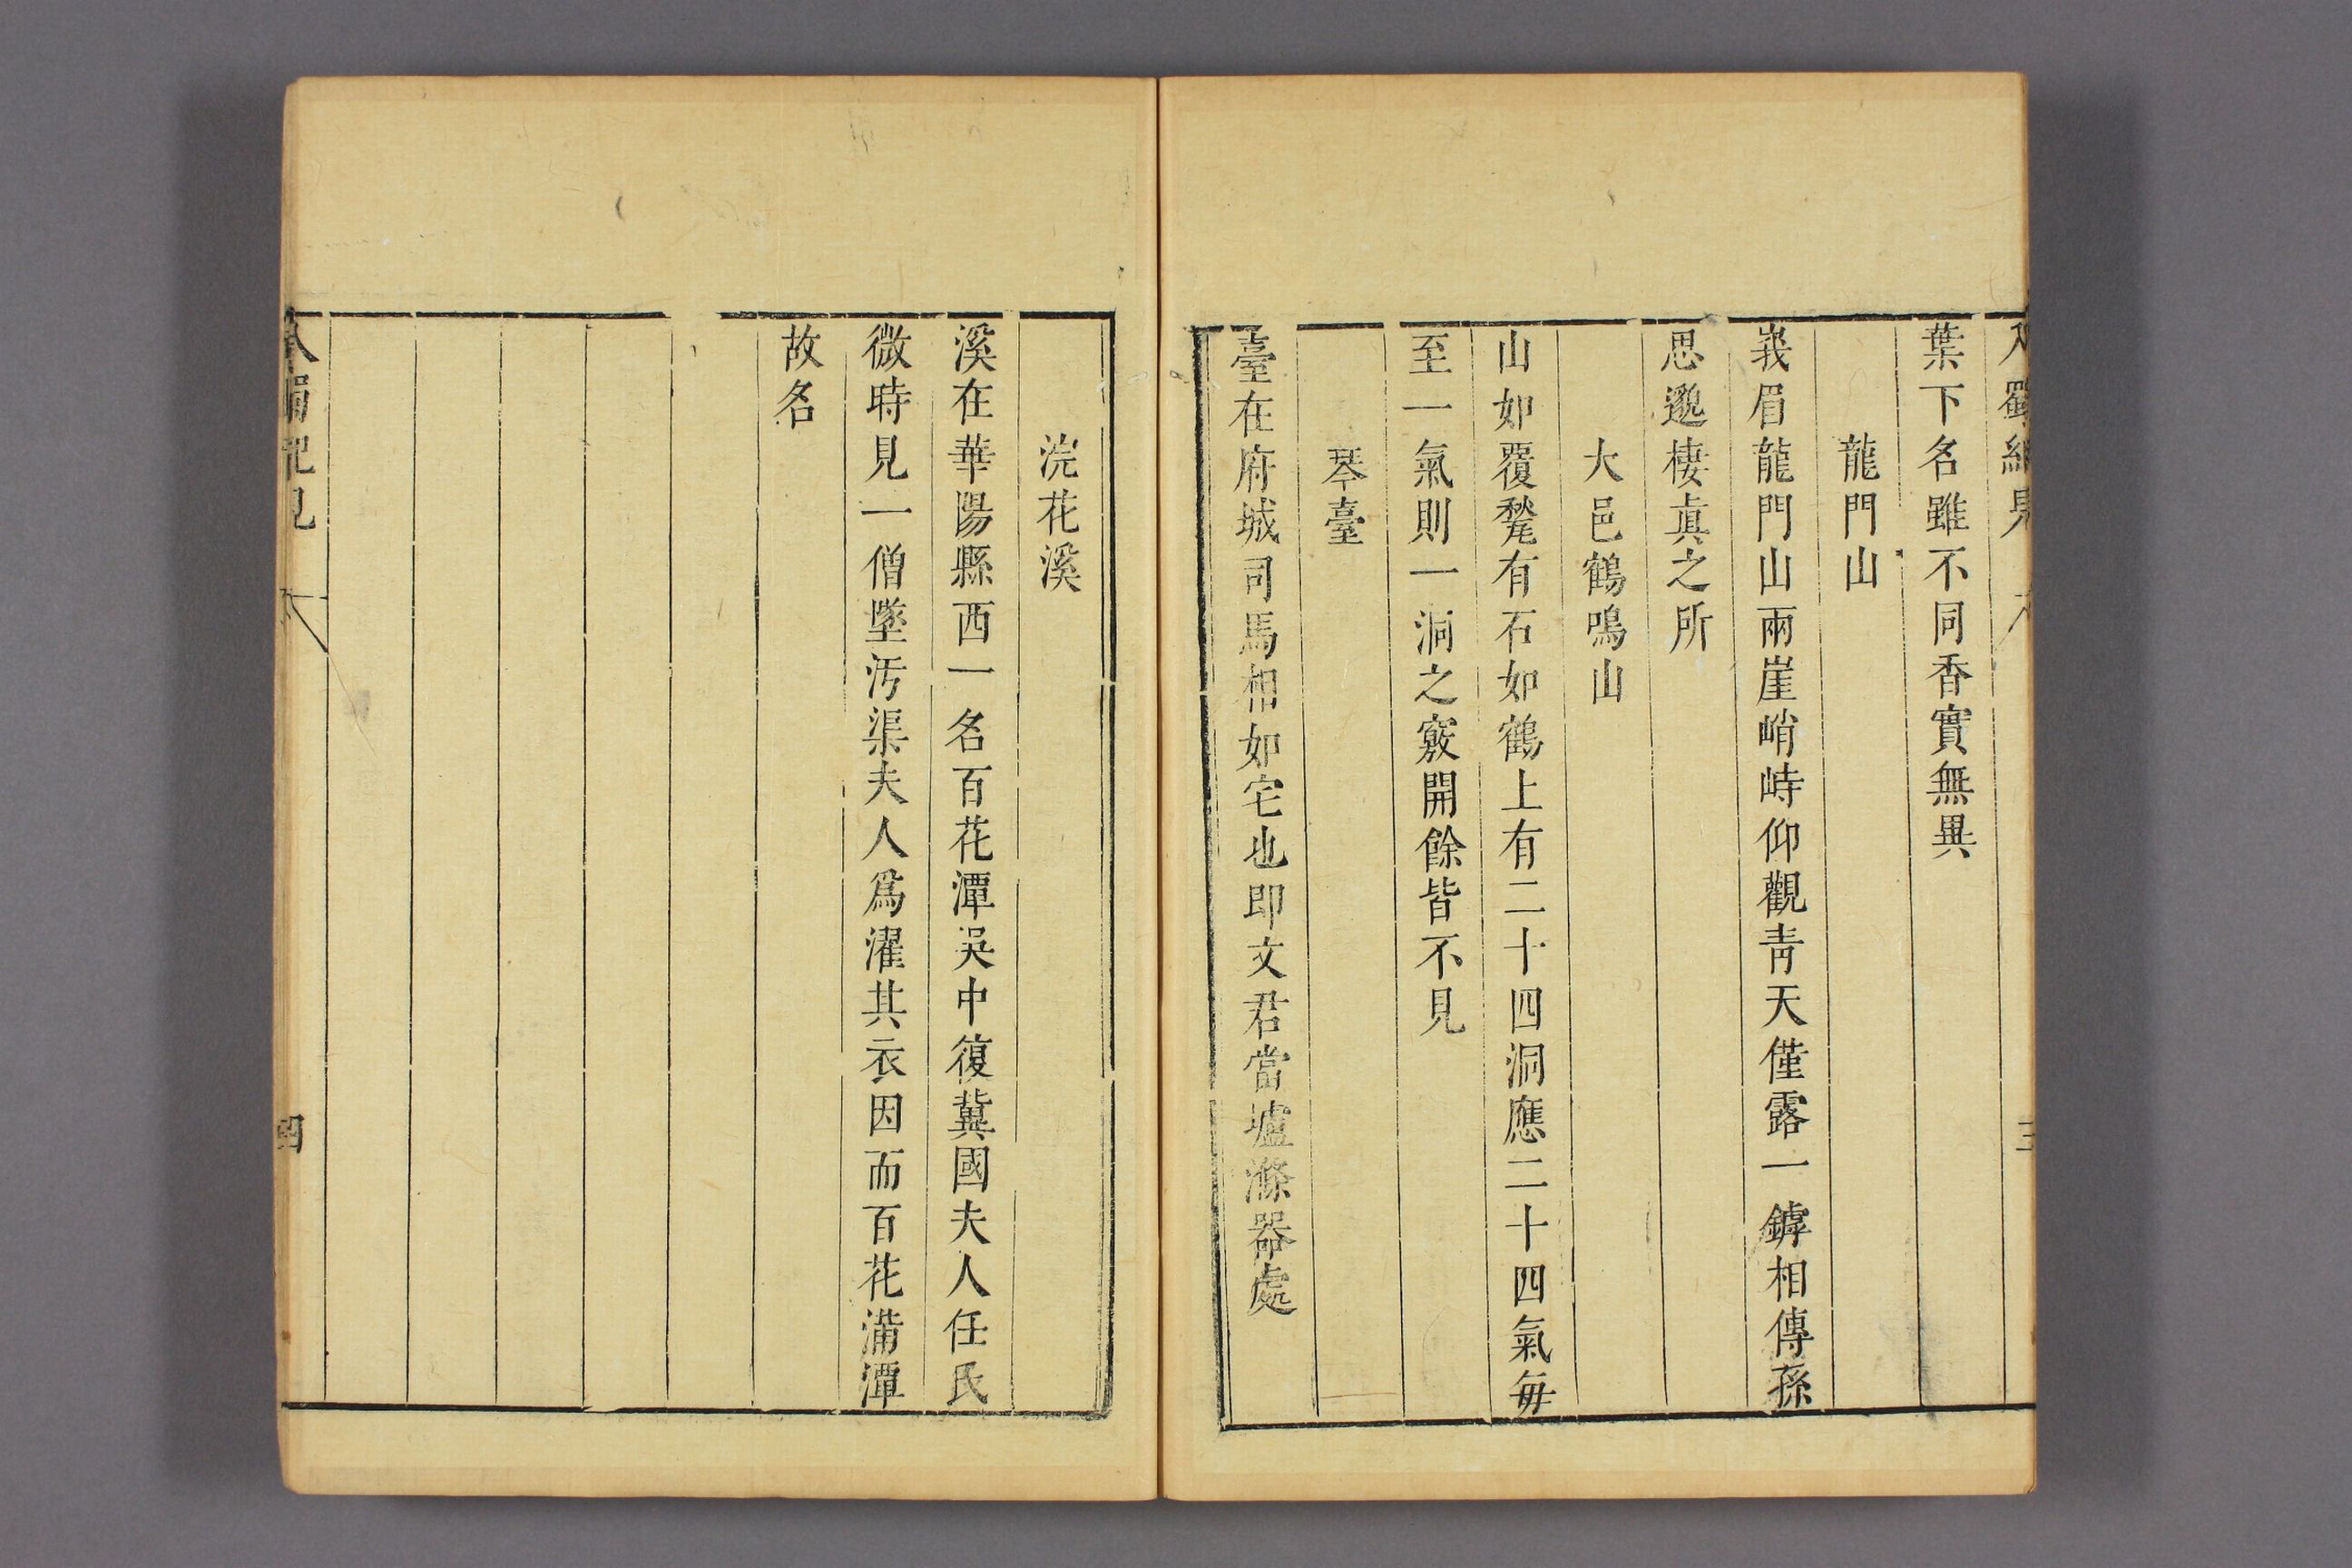 葉下名雖不同香實無異
龍門山
峩眉龍門山兩崖峭峙仰觀靑天僅露一罅相傳孫
思邈棲眞之所
大邑鶴鳴山
山如覆甃有石如鶴上有二十四洞應二十四氣每
至一氣則一洞之竅開餘皆不見
琴臺
臺在府城司馬相如宅也即文君當壚滌器處
浣花溪
溪在華陽縣西一名百花潭吳中復冀國夫人任氏
微時見一僧墜汚渠夫人爲濯其衣因而百花滿潭
故名
入蜀紀見
四